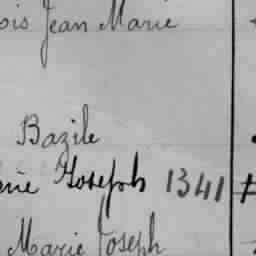 ois Jean Marie
Bazile
rie Joseph 1341 #
Marie Joseph